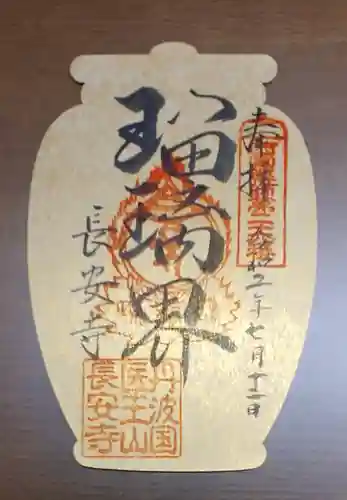 奉拝
令和二年七月十二日
瑠璃界
長安寺
丹波国
医王山
長安寺